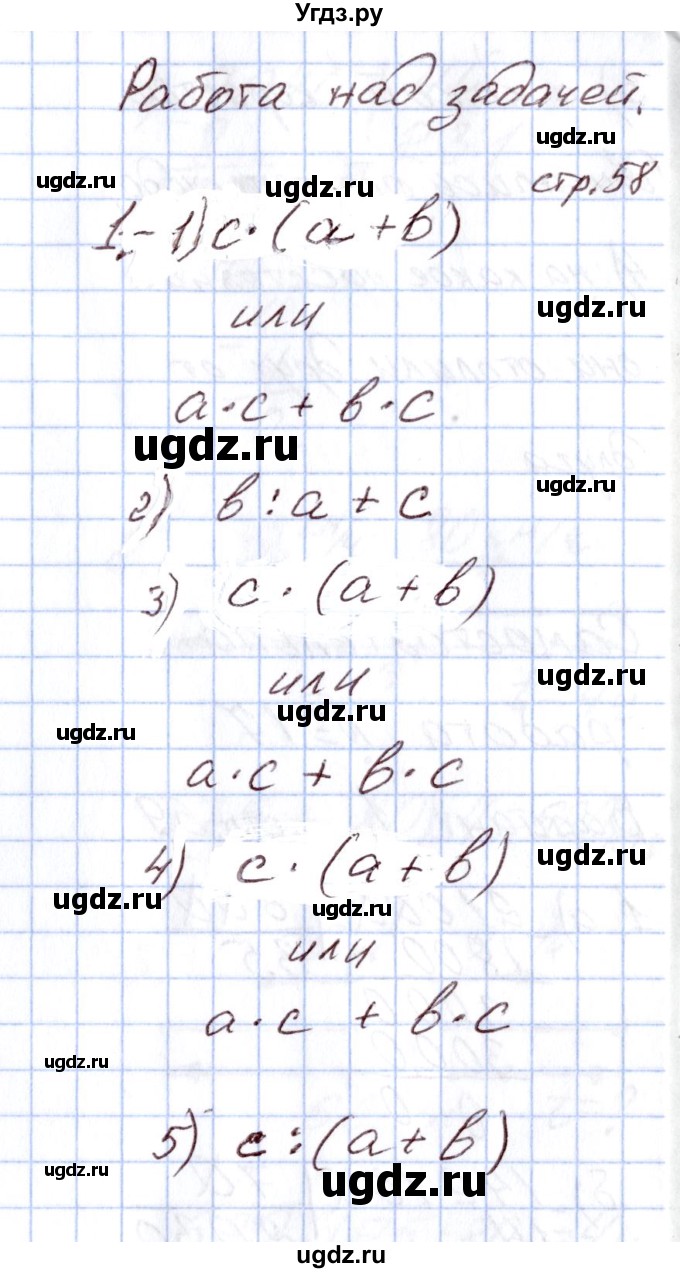 Угдз.ру
Работа над задачей.
ugdz.ru
ugdz.ru
ugdz.ru
стр.58
1.-1) с·(а+в)
ugdz.ru
или
а·с+в·с
ugdz.ru
ugdz.ru
2) в:а+с
3) с·(а+в)
или
ugdz.ru
ugdz.ru
ugdz.ru
а·с+в·с
4) с·(а+в)
ugdz.ru
ugdz.ru
ugdz.ru
или
а·с+в·с
ugdz.ru
5) с:(а+в)
ugdz.ru
ugdz.ru
ugdz.ru